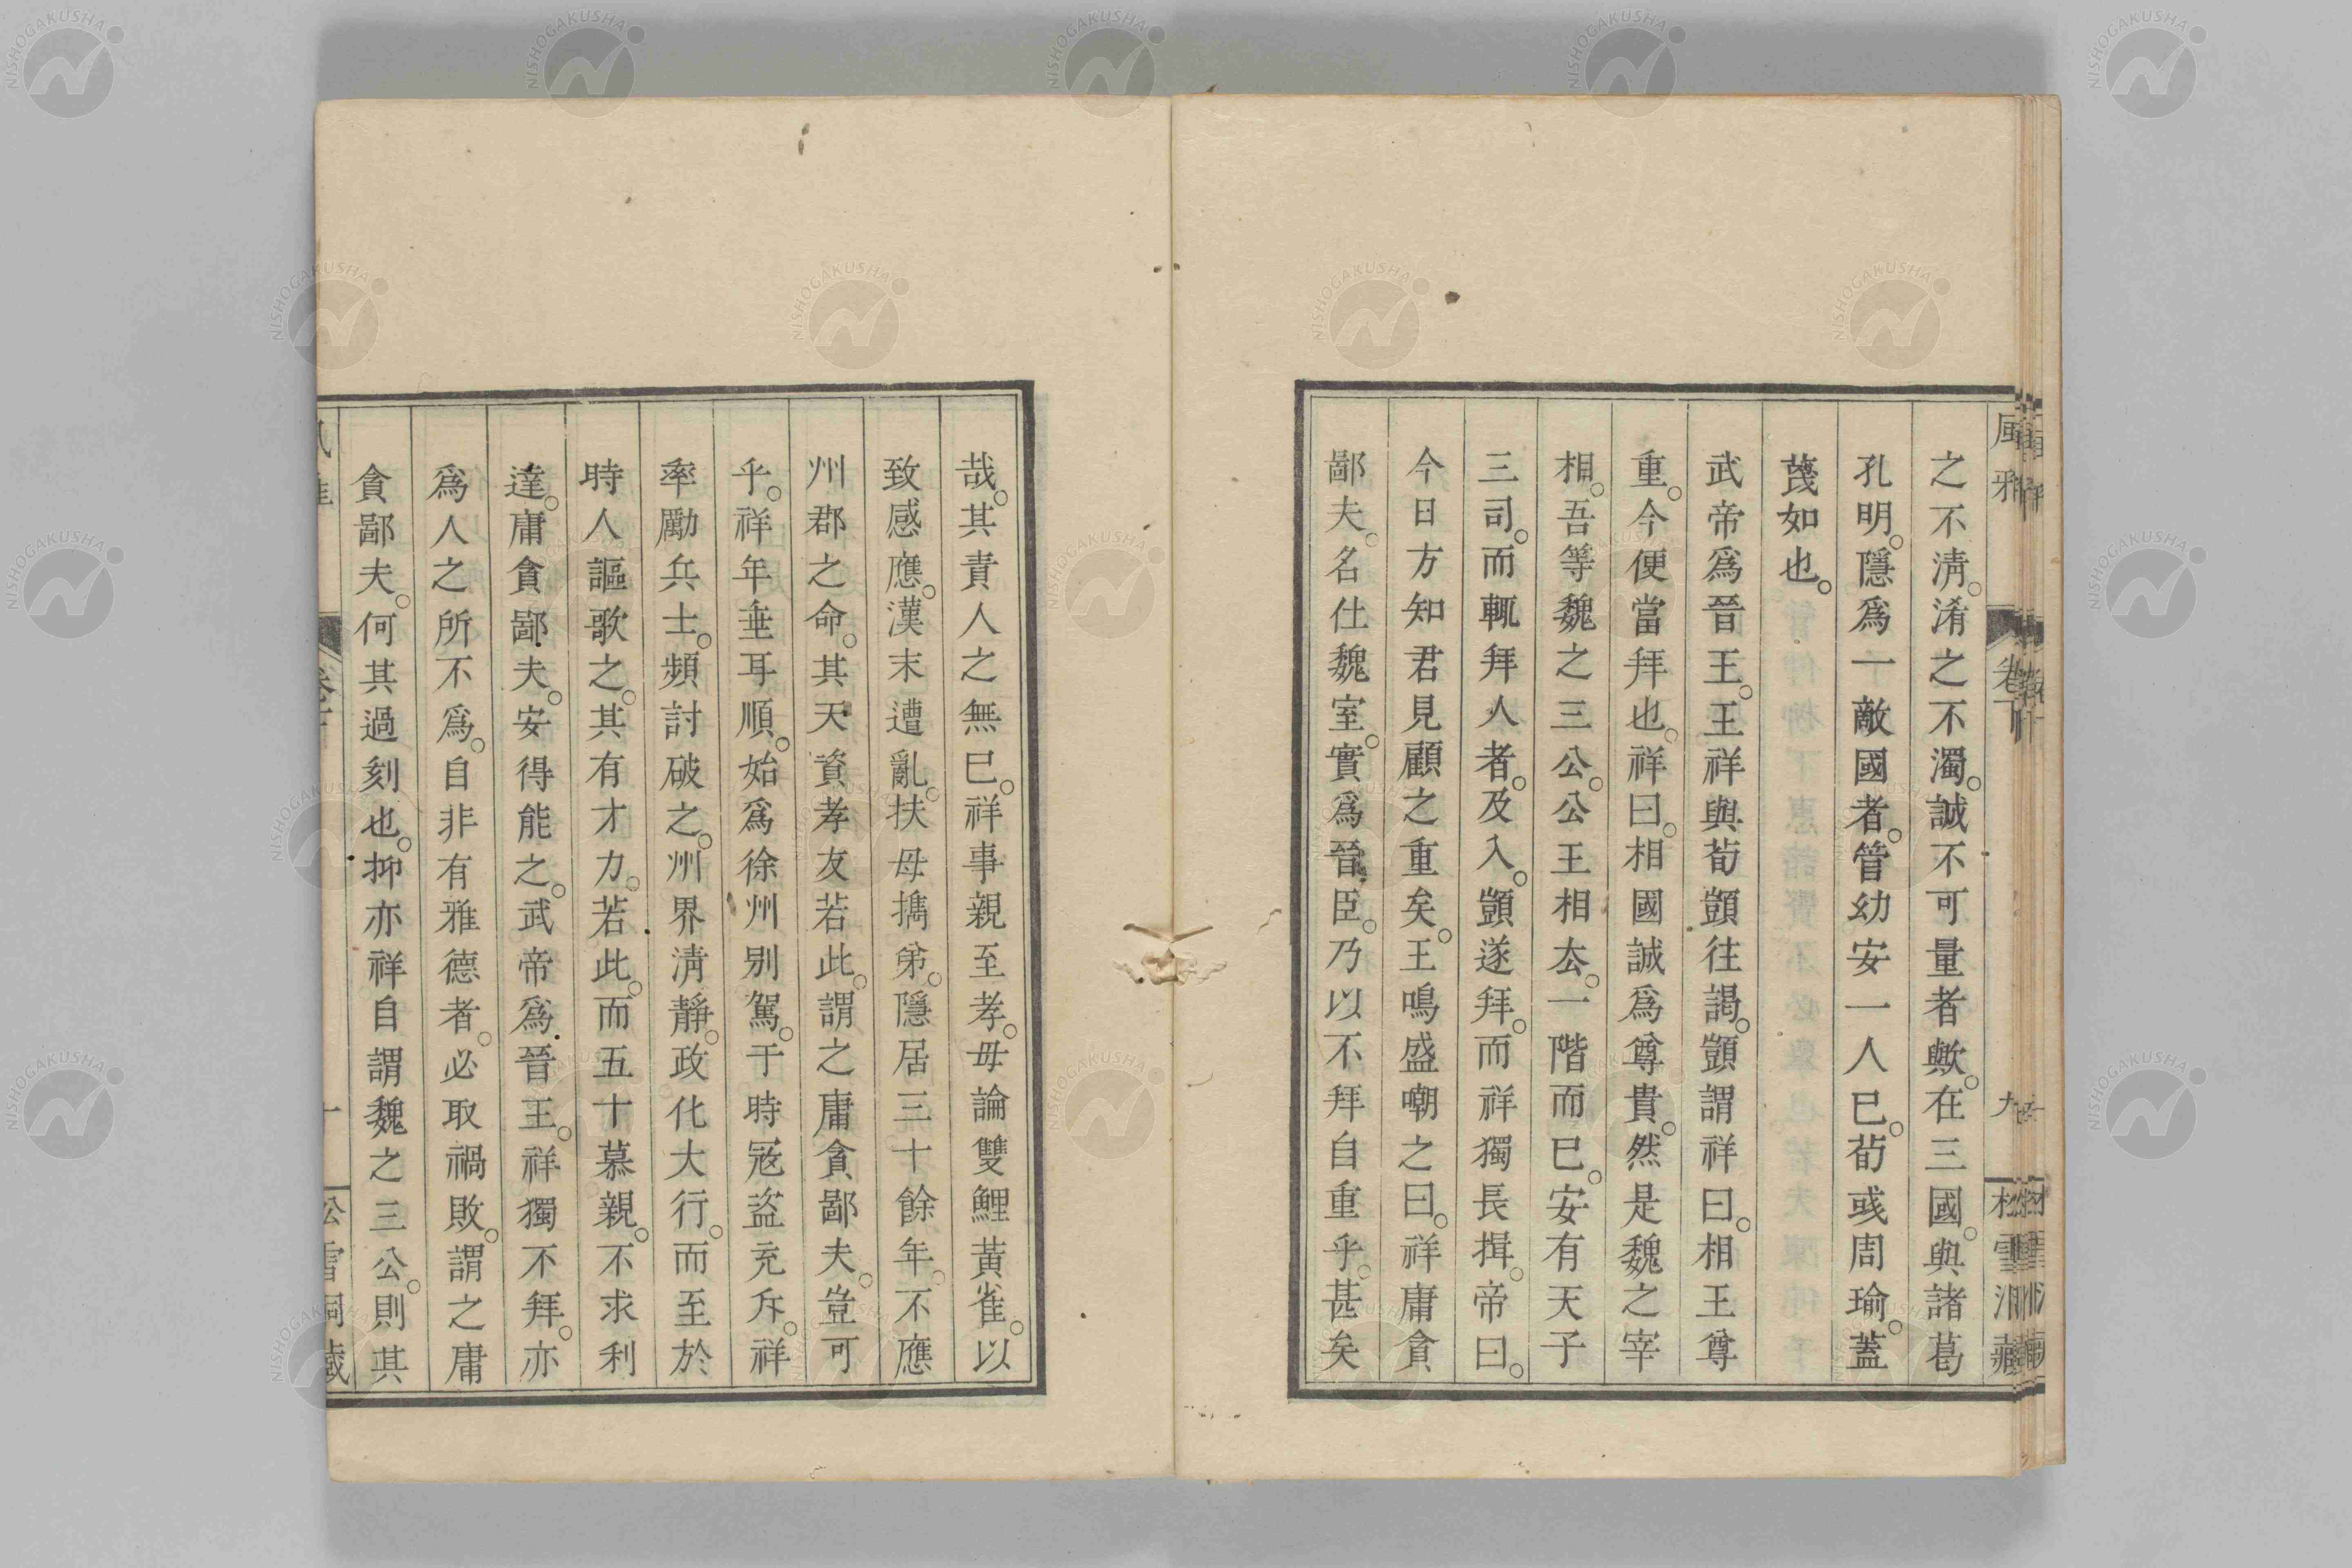 之不淸。淆之不濁。誠不可量者歟。在三國。與諸葛
孔明。隱爲一敵國者。管幼安一人已。荀彧周瑜。蓋
蔑如也。
武帝爲晉王。王祥與荀顗往謁。顗謂祥曰。相王尊
重。今便當拜也。祥曰。相國誠爲尊貴。然是魏之宰
相。吾等魏之三公。公王相去。一階而已。安有天子
三司。而輒拜人者。及入。顗遂拜。而祥獨長揖。帝曰。
今日方知君見顧之重矣。王鳴盛嘲之曰。祥庸貪
鄙夫。名仕魏室。實爲晉臣。乃以不拜自重乎。甚矣
哉。其責人之無已。祥事親至孝。毋論雙鯉黃雀。以
致感應。漢末遭亂。扶母攜弟。隱居三十餘年。不應
州郡之命。其天資孝友若此。謂之庸貪鄙夫。豈可
乎。祥年垂耳順。始爲徐州別駕。于時寇盜充斥。祥
率勵兵士。頻討破之。州界淸靜。政化大行。而至於
時人謳歌之。其有才力。若此。而五十慕親。不求利
達。庸貪鄙夫。安得能之。武帝爲晉王。祥獨不拜。亦
爲人之所不爲。自非有雅德者。必取禍敗。謂之庸
貪鄙夫。何其過刻也。抑亦祥自謂魏之三公。則其
NISHOGAKUSHA